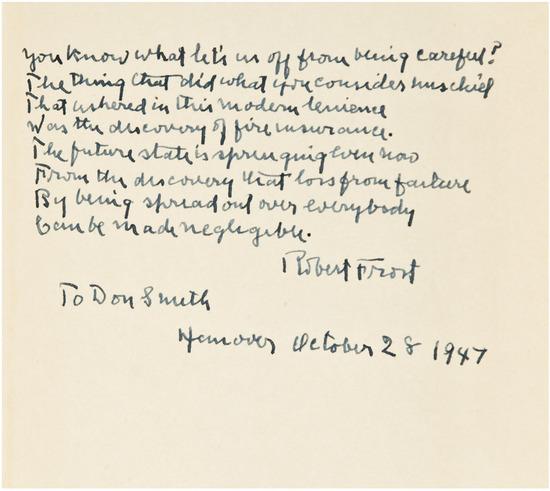 You know what let's us off from being careful?
The thing that did what you consider mischief
That ushered in this modern lenience
Was the discovery of fire insurance.
The future state is springing even now
From the discovery that loss from failure
By being spread out over everybody
Can be made negligible.
Robert Frost
To Don Smith
Hanover October 28 1947